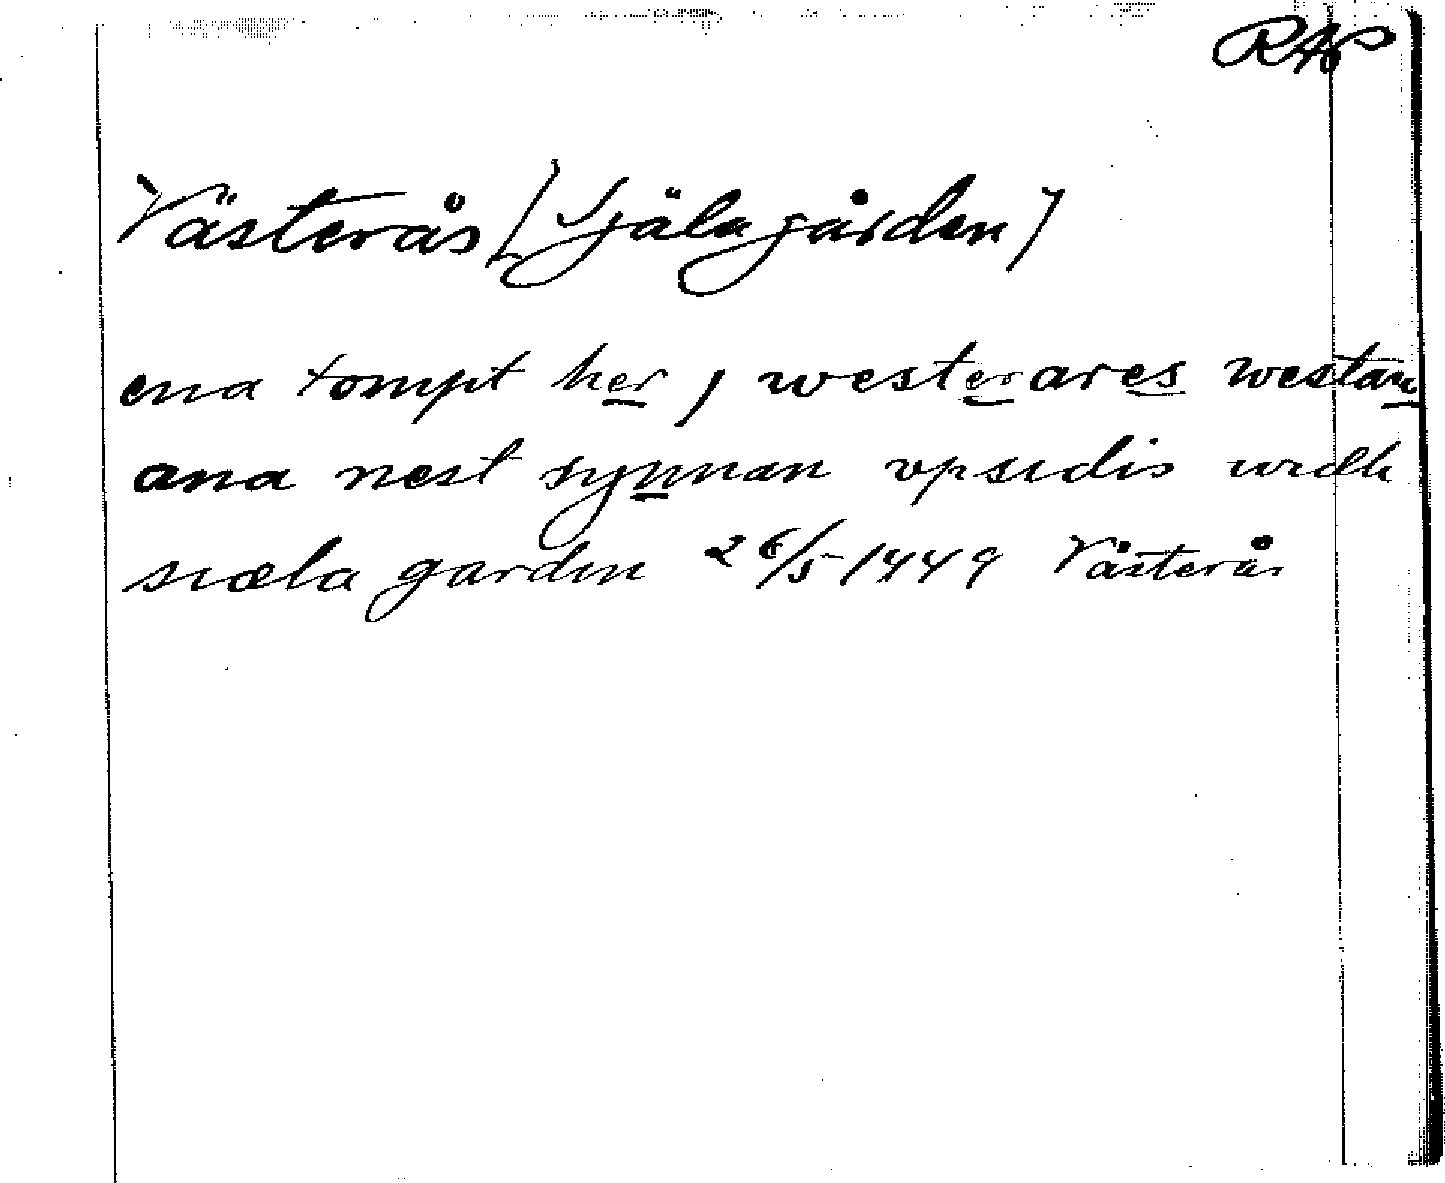 RAP
Västerås [Själagården]
ena tompt her j westerares westan
ana nest synnan vpsidis widh
siæla garden 26/5 1449 Västerås